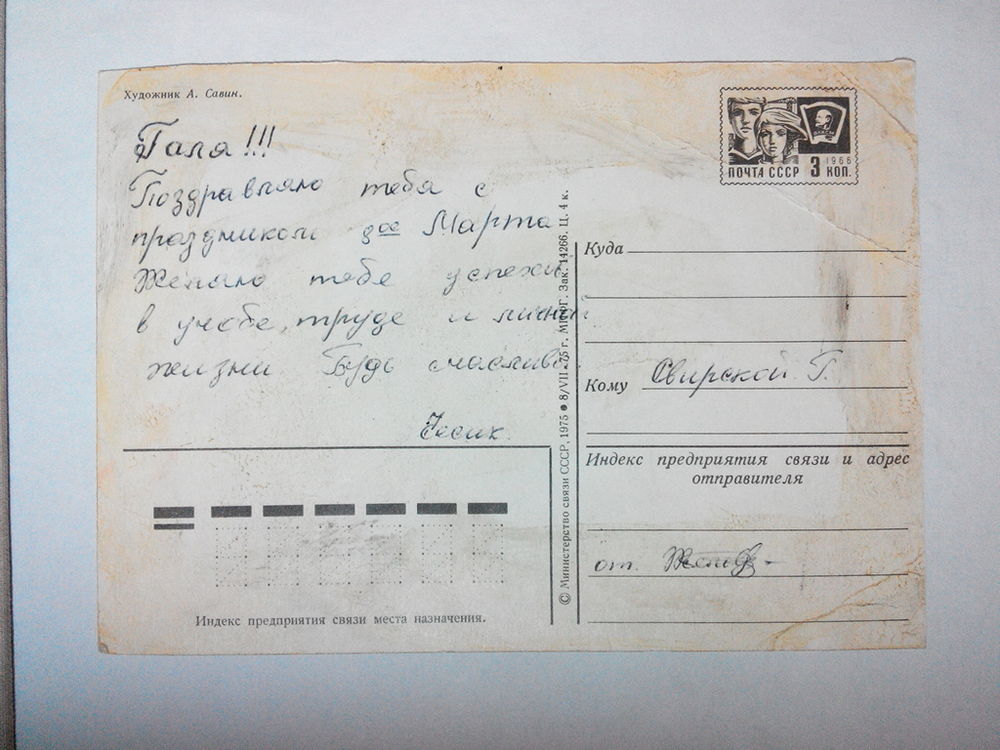 Художник А. Савин.
Галя!!!
Поздравляю тебя с
праздником 8ое Марта
Желаю тебе успехи
в учебе, труде и личной
жизни Будь счаслива.
ПОЧТА СССР 3 КОП.
1966
Куда
Кому Свирской Г.
Индекс предприятия связи и адрес
отправителя
от
© Министерство связи СССР, 1975 ● 8/VII-75 г. Зак. 14266. Ц. 4 к.
Индекс предприятия связи места назначения.